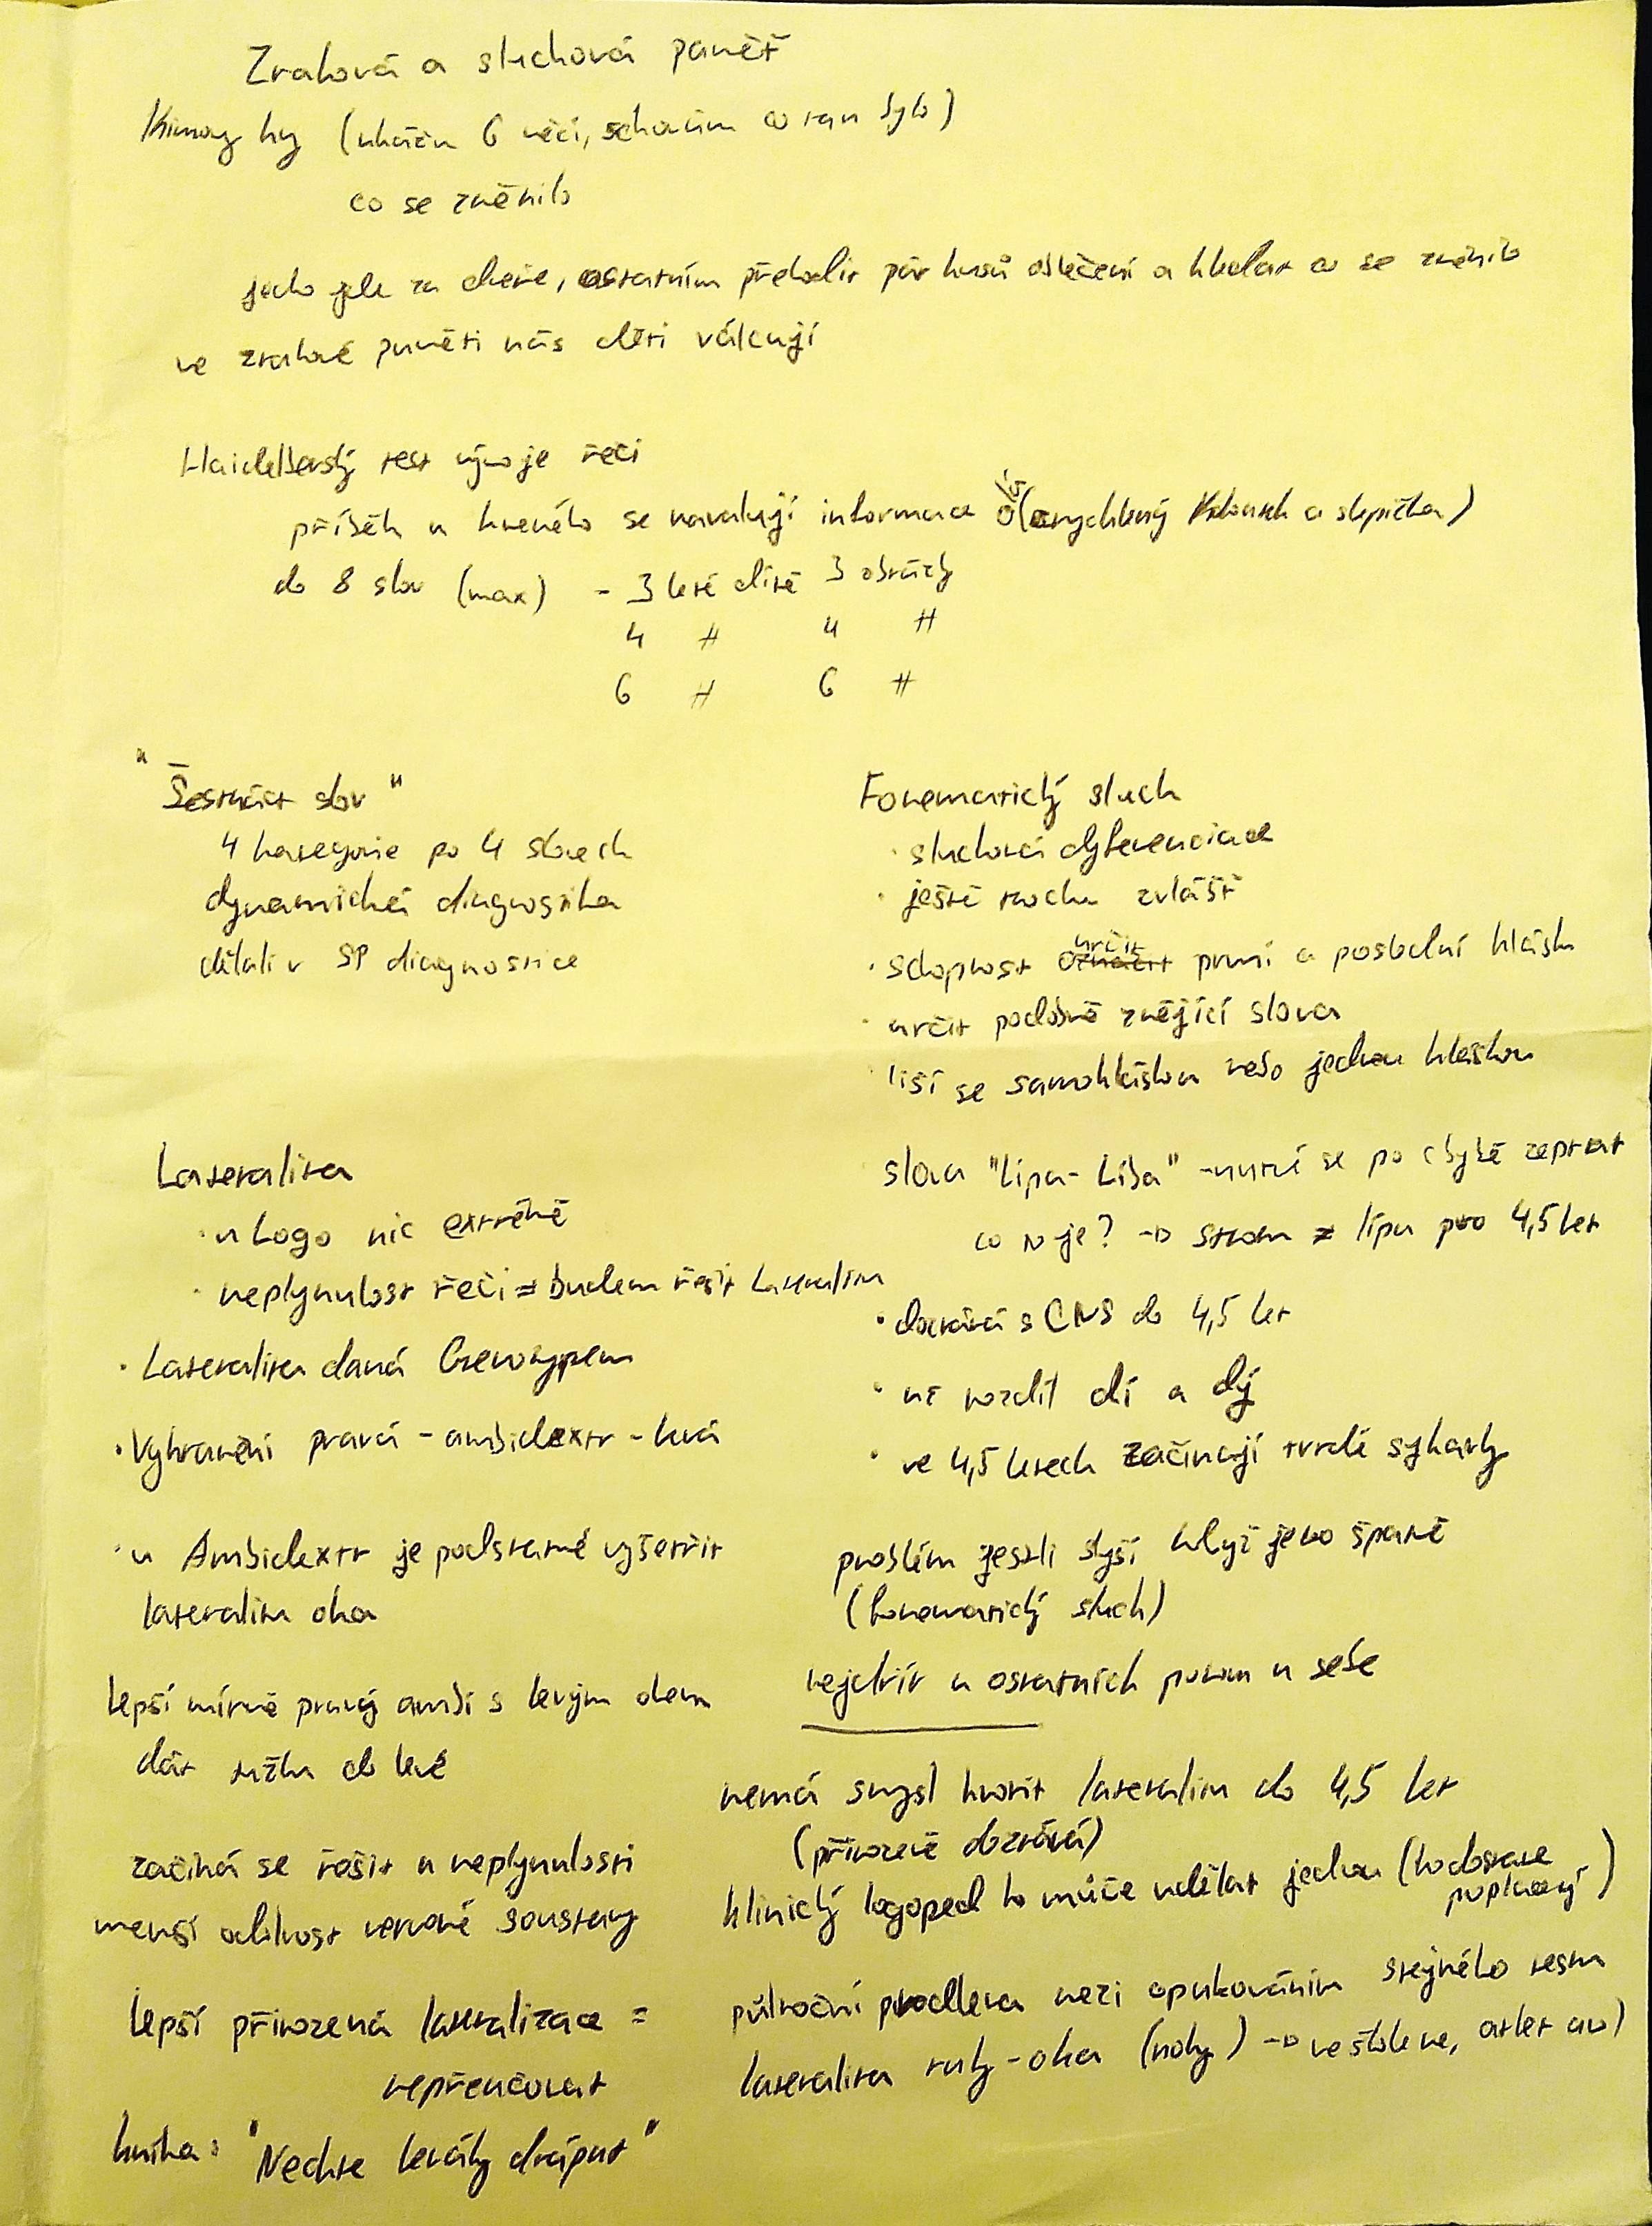 Zraková a sluchová paměť
Kimovy hry (ukážu 6 věcí, schovám co tam bylo)
co se změnilo
jedno jde za dveře, ostatním přehodit pár kusů oblečení a hledat co se změnilo
ve zrakové paměti nás děti válcují
Haidelberský test vývoje řeči
příběh u kterého se navalují informace (zrychlený Kohoutek a slepička)
do 8 slov (max) - 3 leté dítě 3 obrázky
4 〃 4 〃
6 〃 6 〃
"Šestnáct slov"
4 kategorie po 4 slovech
dynamická diagnostika
dělali v SP diagnostice
Fonematický sluch
· sluchová dyferenciace
· ještě trochu zvlášť
· schopnost určit první a poslední hlásku
· určit podobně znějící slova
· liší se samohláskou nebo jednou hláskou
slova "Lípa - Líba" - nutné se po chybě zeptat
co to je? → strom = lípa pro 4,5 let
· dozrává s CNS do 4,5 let
· ne rozdíl dí a dý
· ve 4,5 letech začínají tvrdé sykavky
problém jestli slyší když je to špatně
(fonematický sluch)
nejdřív u ostatních potom u sebe
Lateralita
· u Logo nic extrémě
· neplynulost řeči = budem řešit Lateralitu
· Lateralita daná Genotypem
· Vyhranění pravá - ambidextr - levá
· u Ambidextr je podstatné vyšetřit
lateralitu oka
lepší mírně pravý ambi s levým okem
dát tužku do levé
začíná se řešit u neplynulosti
menší odolnost nervové soustavy
lepší přirozená lateralizace =
nepřeučovat
kniha: "Nechte leváky drápat"
nemá smysl tvořit lateralitu do 4,5 let
(přirozeně dozrává)
klinický logoped to může udělat jednou (to dostane proplacený)
půlroční prodleva mezi opakováním stejného testu
lateralita ruky - oka (nohy) → ve škole ne, atlet ano)